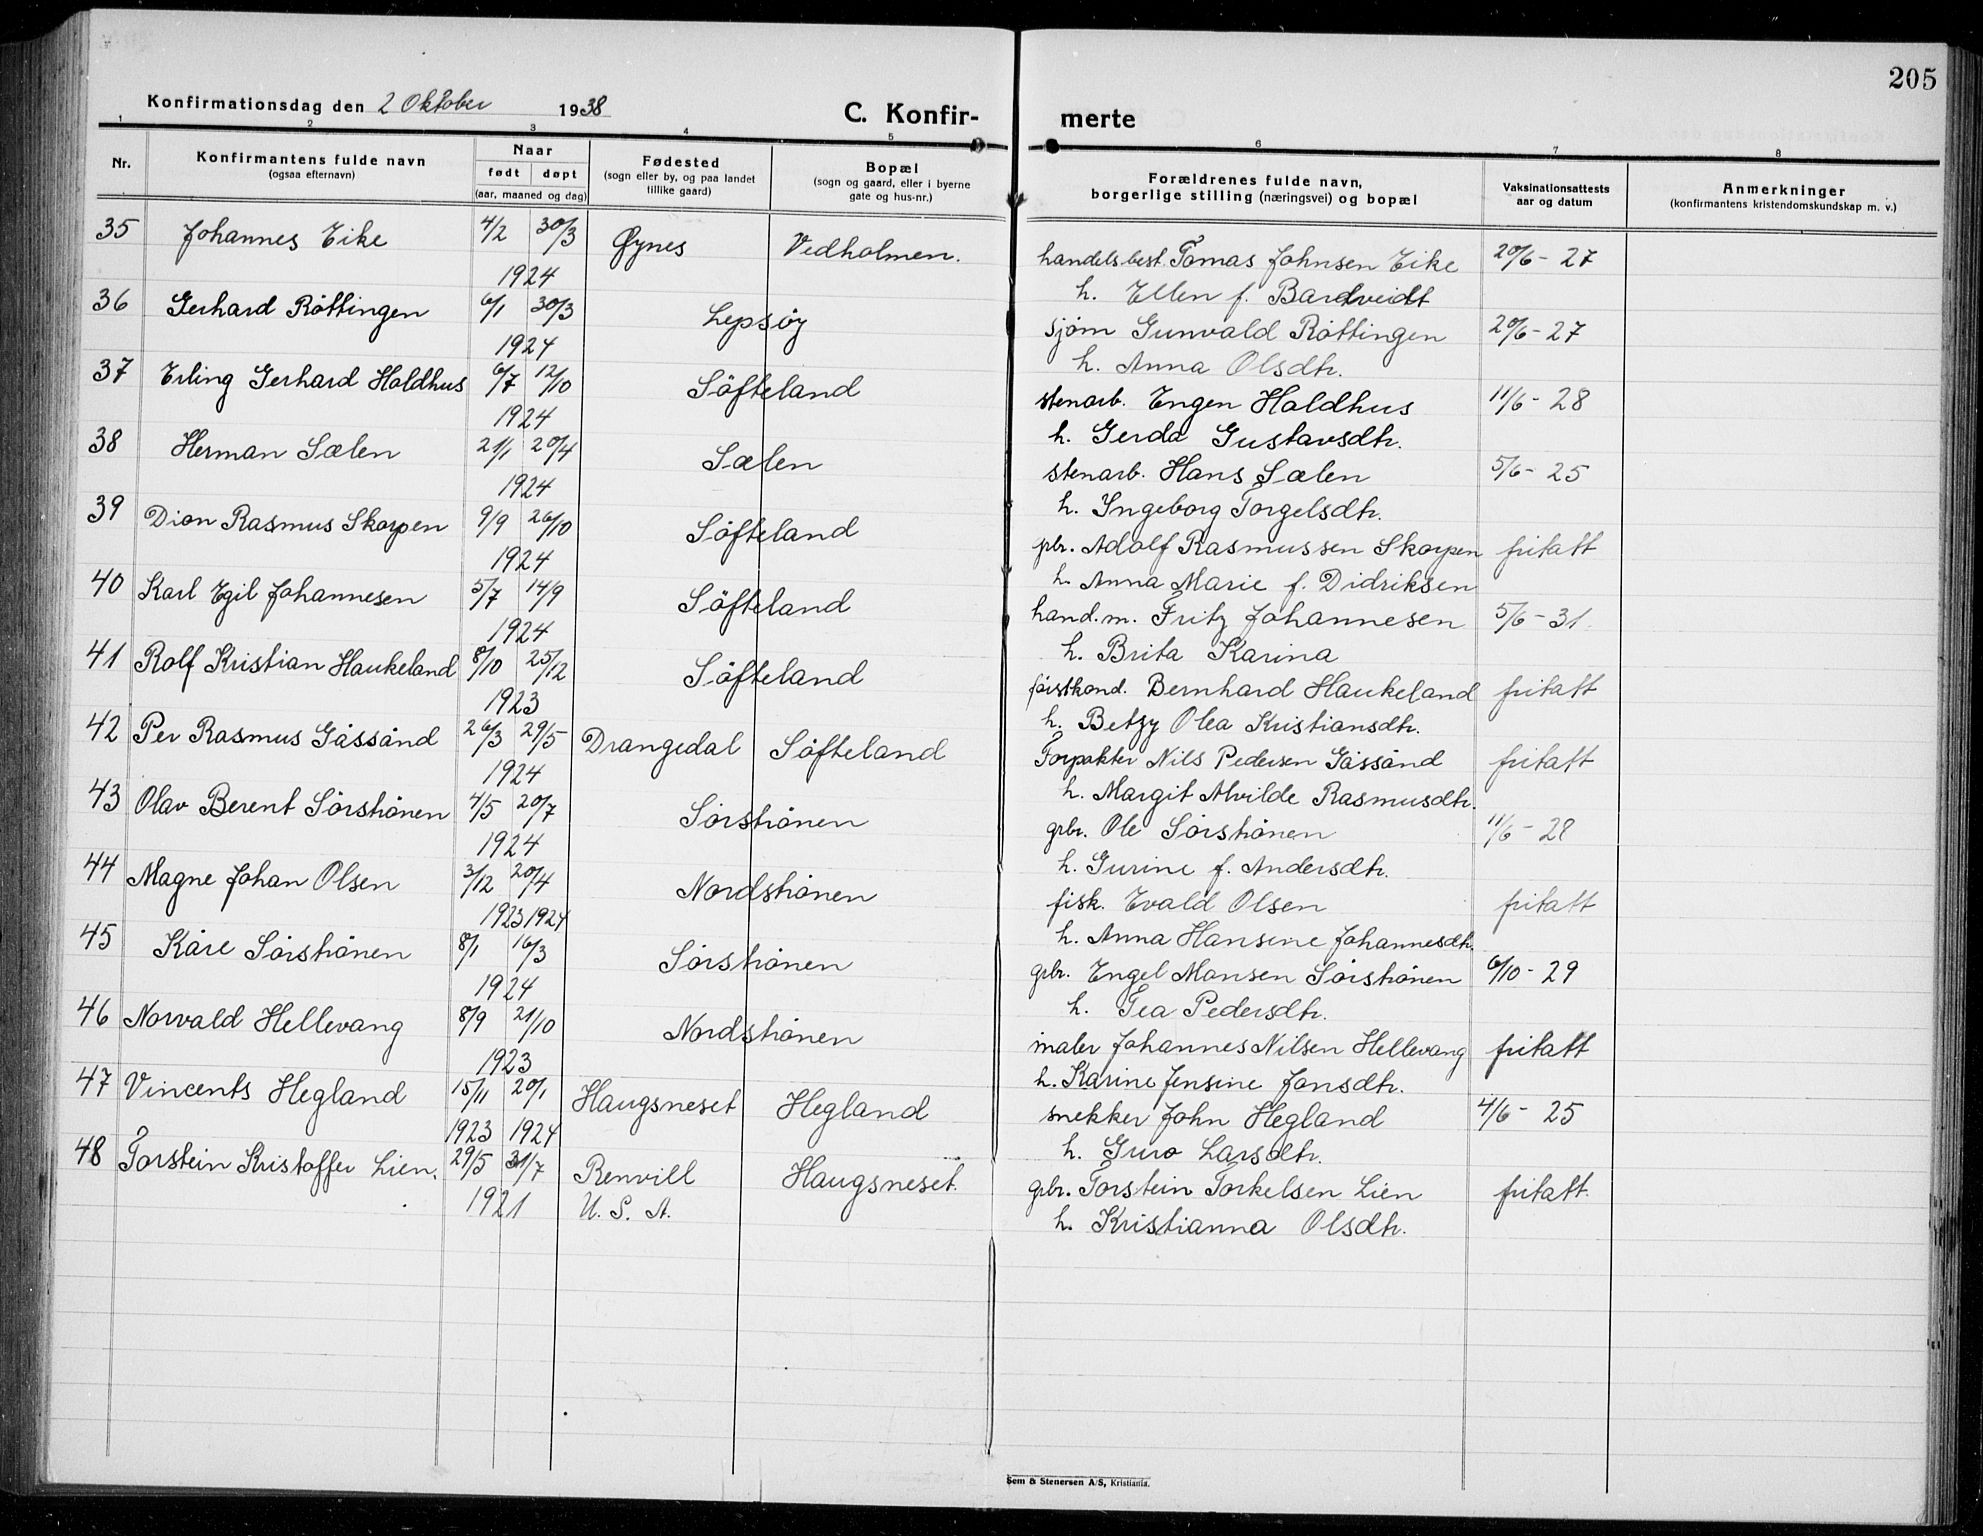 205
Konfirmationsdag den 2 Oktober 1938 C. Konfir- merte
1 2 3 4 5 6 7 8
Nr. Konfirmantens fulde navn (ogsaa efternavn) Naar født døpt (aar, maaned og dag) Fødested (sogn eller by, og paa landet tillike gaard) Bopæl (sogn og gaard, eller i byerne gate og hus-nr.) Forældrenes fulde navn, borgerlige stilling (næringsvei) og bopæl Vaksinationsattests aar og datum Anmerkninger (konfirmantens kristendomskundskap m. v.)
35 Johannes Eike 4/2 30/3 Øynes Vedholmen. handelsbest. Tomas Johnsen Eike 20/6 - 27
1924 h. Ellen f. Bardtveidt
36 Gerhard Röttingen 6/1 30/3 Lepsöy sjöm Gunvald Röttingen 20/6 - 27
1924 h. Anna Olsdtr.
37 Erling Gerhard Holdhus 6/7 12/10 Söfteland stenarb. Engen Holdhus 11/6 - 28
1924 h. Gerda Gustavsdtr.
38 Herman Sælen 21/1 20/4 Sælen stenarb. Hans Sælen 5/6 - 25
1924 h. Ingeborg Torgelsdtr.
39 Dion Rasmus Skorpen 9/9 26/10 Söfteland Adolf Rasmussen Skorpen fritatt
1924 h. Anna Marie f. Didriksen
40 Karl Egil Johannesen 5/7 14/9 Söfteland hand.m. Fritz Johannesen 5/6 - 31
1924 h. Brita Karina
41 Rolf Kristian Haukeland 8/10 25/12 Söfteland Bernhard Haukeland fritatt
1923 h. Betzy Olea Kristiansdtr.
42 Per Rasmus Gåssånd 26/3 29/5 Drangedal Söfteland Forpakter Nils Pedersen Gåssånd fritatt
1924 h. Margit Alvilde Rasmusdtr.
43 Olav Berent Sörströnen 4/5 20/7 Sörströnen grbr. Ole Sörströnen 11/6 - 28
1924 h. Gurine f. Andersdtr.
44 Magne Johan Olsen 3/12 20/4 Nordströnen fisk. Evald Olsen fritatt
1923 1924 h. Anna Hansine Johannesdtr.
45 Kåre Sörströnen 8/1 16/3 Sörströnen grbr. Engel Monsen Sörströnen 6/10 - 29
1924 h. Gea Pedersdtr.
46 Norvald Hellevang 8/9 21/10 Nordströnen maler Johannes Nilsen Hellevang fritatt
1923 h. Karine Jensine Jonsdtr.
47 Vincents Hegland 15/11 20/1 Haugsneset Hegland snekker John Hegland 4/6 - 25
1923 1924 h. Guro Larsdtr.
48 Torstein Kristoffer Lien. 29/5 31/7 Renvill Haugsneset. grbr. Torstein Torkelsen Lien fritatt.
1921 U. S. A. h. Kristianna Olsdtr.
Sem & Stenersen A/S, Kristiania.